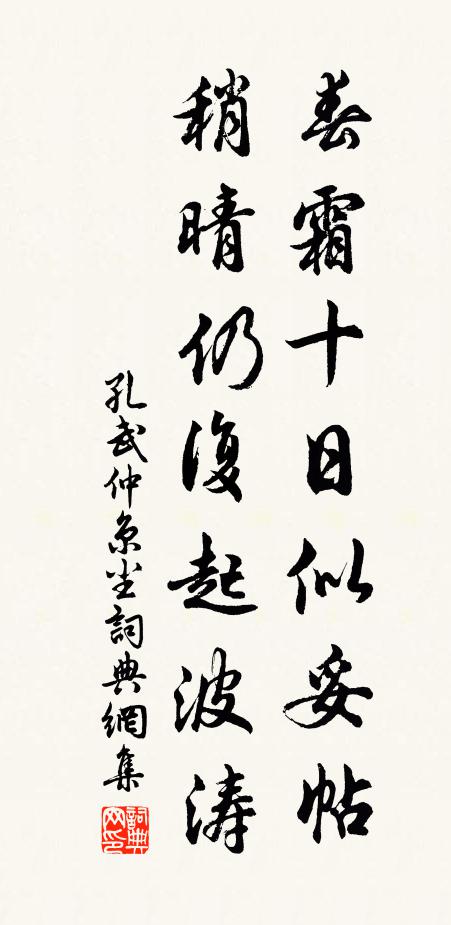 春霜十日似妥帖
稍晴仍復起波涛
孔武仲京尘詞典網集
詞典
网印